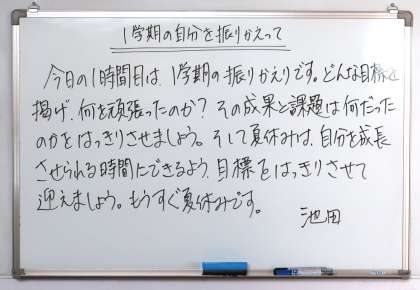 1学期の自分を振りかえって
今日の1時間目は、1学期の振りかえりです。どんな目標を
掲げ、何を頑張ったのか？その成果と課題は何だった
のかをはっきりさせましょう。そして夏休みは、自分を成長
させられる時間にできるよう、目標をはっきりさせて
迎えましょう。もうすぐ夏休みです。
池田